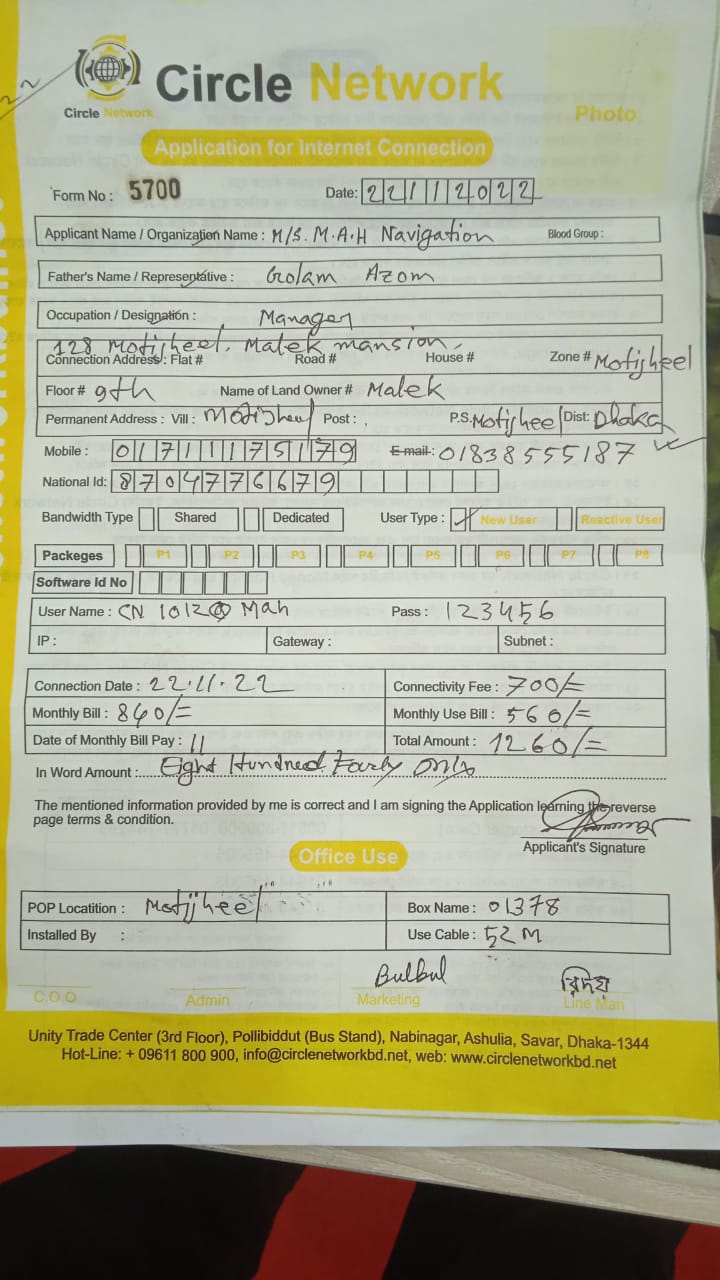 22
Circle Network
Circle Network
Photo
Application for Internet Connection
Form No : 5700 Date: 22112022
Applicant Name / Organization Name : M/S. M.A.H Navigation Blood Group :
Father's Name / Representative : Golam Azom
Occupation / Designation : Manager
128 Motijheel, Malek mansion,
Connection Address : Flat # Road # House # Zone # Motijheel
Floor # 9th Name of Land Owner # Malek
Permanent Address : Vill : Motijheel Post : P.S. Motijheel Dist: Dhaka
Mobile : 01711175179 E-mail : 01838555187
National Id: 8704776679
Bandwidth Type Shared Dedicated User Type : New User Reactive User
Packeges P1 P2 P3 P4 P5 P6 P7 P8
Software Id No
User Name : CN 1012@ Mah Pass : 123456
IP : Gateway : Subnet :
Connection Date : 22.11.22 Connectivity Fee : 700/=
Monthly Bill : 840/= Monthly Use Bill : 560/=
Date of Monthly Bill Pay : 11 Total Amount : 1260/=
In Word Amount : Eight Hundred Fourty only
The mentioned information provided by me is correct and I am signing the Application learning the reverse
page terms & condition.
Applicant's Signature
Office Use
POP Locatition : Motijheel Box Name : 01378
Installed By : Use Cable : 52 M
Bulbul
C.O.O Admin Marketing Line Man
Unity Trade Center (3rd Floor), Pollibiddut (Bus Stand), Nabinagar, Ashulia, Savar, Dhaka-1344
Hot-Line: + 09611 800 900, info@circlenetworkbd.net, web: www.circlenetworkbd.net